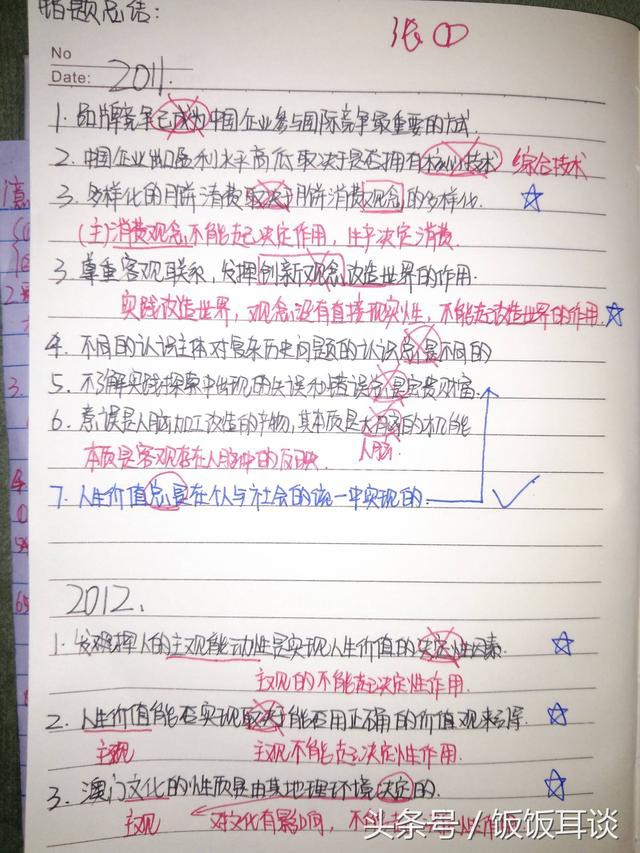 错题总结：
张①
No
Date: 2011.
1. 品牌竞争已成为中国企业参与国际竞争最重要的方式
2. 中国企业出口盈利水平高低取决于是否拥有核心技术 综合技术
3. 多样化的月饼消费取决于月饼消费观念的多样化.
(主)消费观念不能起决定作用，生产决定消费.
3 尊重客观联系，发挥创新观念改造世界的作用.
实践改造世界，观念没有直接现实性，不能起改造世界的作用.
4. 不同的认识主体对复杂历史问题的认识总是不同的
5. 不了解实践探索中出现的失误和错误总是宝贵财富.
6. 意识是人脑加工改造的产物，其本质是大自然的机能
人脑.
本质是客观存在人脑中的反映.
7. 人生价值总是在个人与社会的统一中实现的.
2012.
1. 发挥人的主观能动性是实现人生价值的决定性因素.
主观的不能起决定性作用.
2. 人生价值能否实现取决于能否用正确的价值观来引导.
主观 主观不能起决定性作用.
3. 澳门文化的性质是由其地理环境决定的.
主观 对文化有影响，不能
头条号／饭饭耳谈